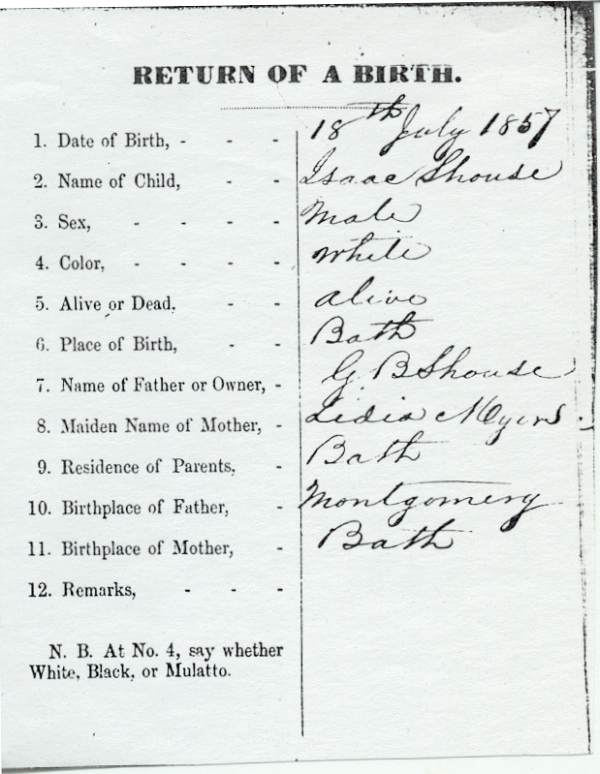 RETURN OF A BIRTH.
1. Date of Birth, - - - 18th July 1857
2. Name of Child, - - Isaac Shouse
3. Sex, - - - - Male
4. Color, - - - - White
5. Alive or Dead. - - alive
6. Place of Birth, - - Bath
7. Name of Father or Owner, - G B Shouse
8. Maiden Name of Mother, - Lidia Myers.
9. Residence of Parents, - Bath
10. Birthplace of Father, - Montgomery
11. Birthplace of Mother, - Bath
12. Remarks, - - -
N. B. At No. 4, say whether
White, Black, or Mulatto.